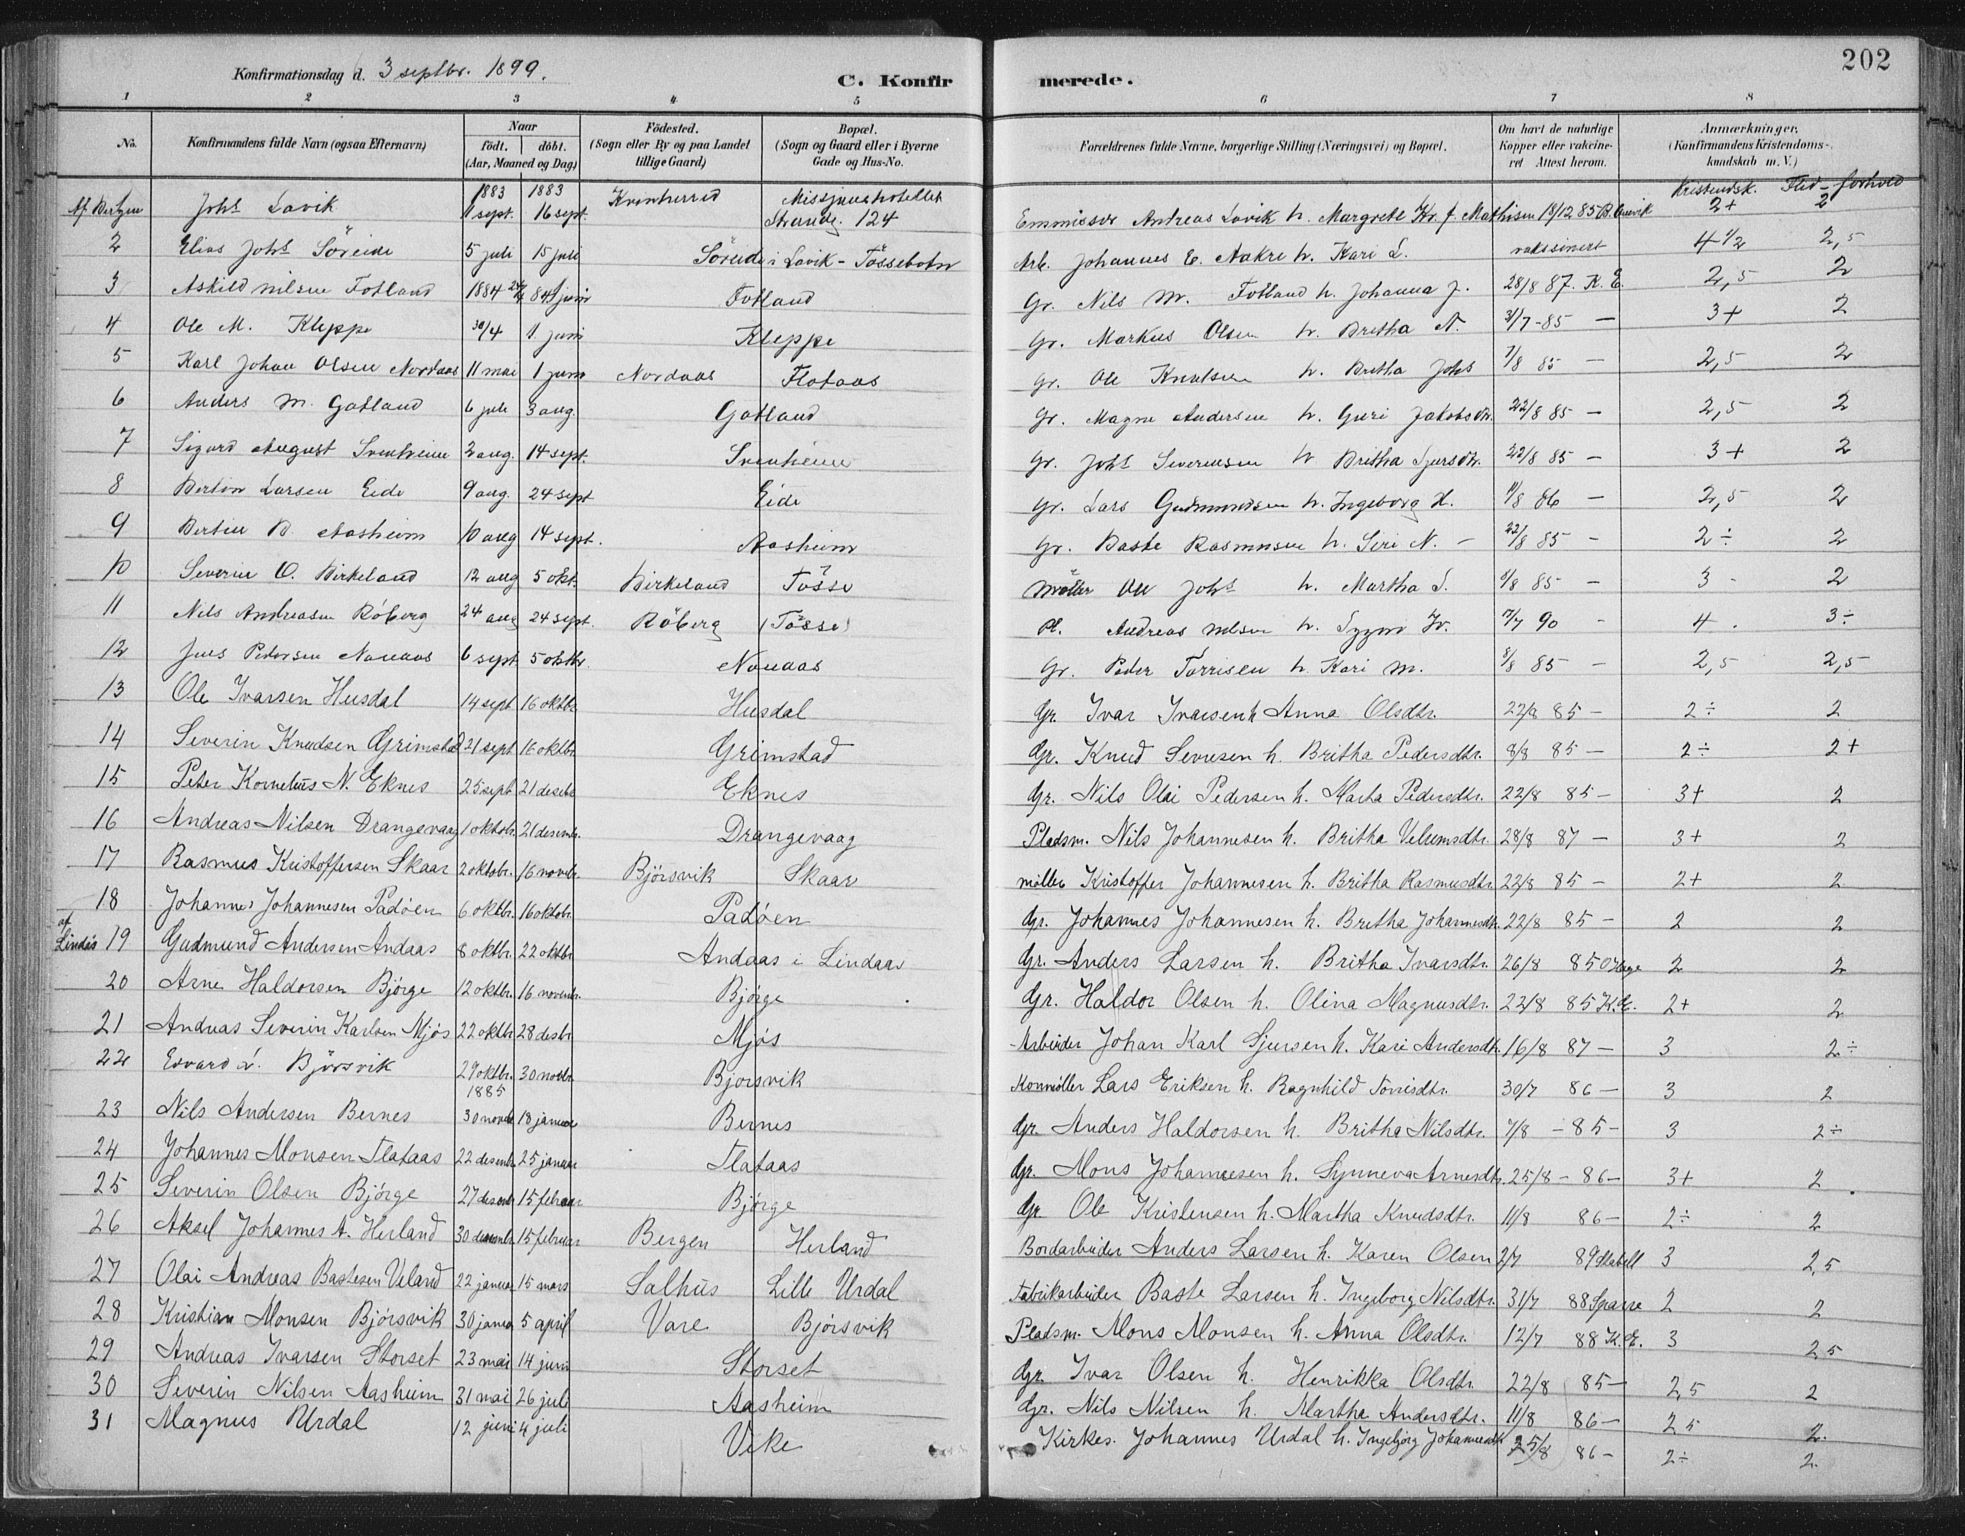 202
Konfirmationsdag d. 3 septbr. 1899.
C. Konfirmerede.
1 2 3 4 5 6 7 8
No. Konfirmandens fulde Navn (ogsaa Efternavn) Naar født. døbt. (Aar, Maaned og Dag) Fødested. (Sogn eller By og paa Landet tillige Gaard) Bopæl. (Sogn og Gaard eller i Byerne Gade og Hus-No. Forældrenes fulde Navne, borgerlige Stilling (Næringsvei) og Bopæl. Om havt de naturlige Kopper eller vakcineret Attest herom. Anmærkninger, (Konfirmandens Kristendomskundskab m. V.)
Kristendsk. Flid - forhold
Af Bergen Johs Lavik 1883 1 sept. 1883 16 sept. Kvinherred Missjonshotellet Strandg. 124 Emmissær Andreas Lavik h. Margrete Kr. f. Mathisen 13/12 85 2+ 2
2 Elias Johs Söreide 5 juli 15 juli Söreide i Lavik - Tössebotn Arb. Johannes E. Aakre h. Kari L. vaksinert 4 1/2 2,5
3 Askild Nilsen Fotland 1884 84 1 juni Fotland Gr. Nils M. Fotland h. Johanna J. 28/8 87. K. E. 2,5 2
4 Ole M. Kleppe 30/4 1 juni Kleppe Gr. Markus Olsen h. Britha N. 31/7-85 - 3+ 2
5 Karl Johan Olsen Nordaas 11 mai 1 juni Nordaas Flataas Gr. Ole Knutsen h. Britha Johs 7/8 85 - 2,5 2
6 Anders M. Gotland 6 juli 3 aug. Gotland Gr. Magne Andersen h. Guri Jakobsdtr. 22/8 85 - 2,5 2
7 Sigurd August Svenheim 2 aug. 14 sept. Svenheim Gr. Johs Severinsen h Britha Sjursdtr. 22/8 85 - 3+ 2
8 Bertin Larsen Eide 9 aug. 24 sept Eide Gr. Lars Gudmundsen h. Ingeborg H. 11/8 86 - 2,5 2
9 Bertin B. Aasheim 10 aug 14 sept. Aasheim Gr. Baste Rasmusen h. Siri N. - 22/8 85 - 2÷ 2
10 Severin O. Birkeland 12 aug 5 okt. Birkeland Tösse Möller Ole Johs h. Martha S. 8/8 85 - 3 - 2
11 Nils Andreasen Röberg 24 aug 24 sept. Röberg (Tösse) Pl. Andreas Nilsen h. 7/7 90 - 4 . 3÷
12 Jens Pedersen Nonaas 6 sept 5 oktbr. Nonaas Gr. Peder Torrisen h. Kari M. 8/8 85 - 2,5 2,5
13 Ole Ivarsen Husdal 14 sept 16 oktbr. Husdal Gr. Ivar Ivarsen h Anna Olsdtr. 22/8 85 - 2÷ 2
14 Severin Knudsen Grimstad 21 sept 16 oktbr. Grimstad Gr. Knud Sevrisen h. Britha Pedersdtr. 8/8 85 - 2÷ 2+
15 Peter Kornelius N. Eknes 25 sept 21 desebr Eknes Gr. Nils Olai Pedersen h. Marta Pedersdtr. 22/8 85 - 3+ 2
16 Andreas Nilsen Drangevaag 1 oktobr. 21 desembr. Drangevaag Pladsm. Nils Johannesen h. Britha Velumsdtr. 28/8 87 - 3+ 2
17 Rasmus Kristoffersen Skaar 2 oktobr. 16 novbr. Björsvik Skaar möller Kristoffer Johannesen h. Britha Rasmusdtr. 22/8 85 - 2+ 2
18 Johannes Johannesen Padöen 6 oktbr. 16 oktobr. Padöen Gr. Johannes Johannesen h. Britha Johannesdtr. 22/8 85 - 2 2
af Lindås 19 Gudmund Andersen Andaas 8 oktbr. 22 oktbr. Andaas i Lindaas Gr. Anders Larsen h. Britha Ivarsdtr. 26/8 85 O Hage 2 2
20 Arne Haldorsen Björge 12 oktbr. 16 novembr. Björge Gr. Haldor Olsen h. Olina Magnusdtr. 22/8 85 K.E. 2+ 2
21 Andreas Severin Karlsen Mjös 22 oktbr. 28 desbr. Mjös Arbeider Johan Karl Sjursen h. Kari Andersdtr. 16/8 87 - 3 2÷
22 Edvard L. Björsvik 29 oktbr. 30 novbr. Björsvik Kornmöller Lars Eriksen h. Ragnhild Torrisdtr. 30/7 86 - 3 2
23 Nils Andersen Bernes 1885 30 novbr 18 januar Bernes Gr. Anders Haldorsen h. Britha Nilsdtr. 7/8 - 85 - 3 2÷
24 Johannes Monsen Flataas 22 desembr 25 januar Flataas Gr. Mons Johannesen h. Synneva Arnesdtr. 25/8 - 86 - 3+ 2
25 Severin Olsen Björge 27 desembr 15 februar Björge Gr. Ole Kristensen h. Martha Knudsdtr. 11/8 86 - 2÷ 2
26 Aksel Johannes A. Herland 30 desembr 15 februar Bergen Herland Bordarbeider Anders Larsen h. Karen Olsen 2/7 89 3 2,5
27 Olai Andreas Bastesen Veland 22 januar 15 mars Salhus Lille Urdal Fabrikarbeider Baste Larsen h. Ingeborg Nilsdtr. 31/7 88 Sparre 2 2
28 Kristian Monsen Björsvik 30 januar 5 april Vare Björsvik Pladsm. Mons Monsen h. Anna Olsdtr. 12/7 88 K.E. 3 2,5
29 Andreas Ivarsen Storset 23 mai 14 juni Storset Gr. Ivar Olsen h. Henrikka Olsdtr. 22/8 85 - 2,5 2
30 Severin Nilsen Aasheim 31 mai 26 juli Aasheim Gr. Nils Nilsen h. Martha Andersdtr. 11/8 86 - 2 5 2.
31 Magnus Urdal 12 juni 4 juli Vike Kirkes. Johannes Urdal h. Ingebjörg Johannesdtr 25/8 86 - 2÷ 2.